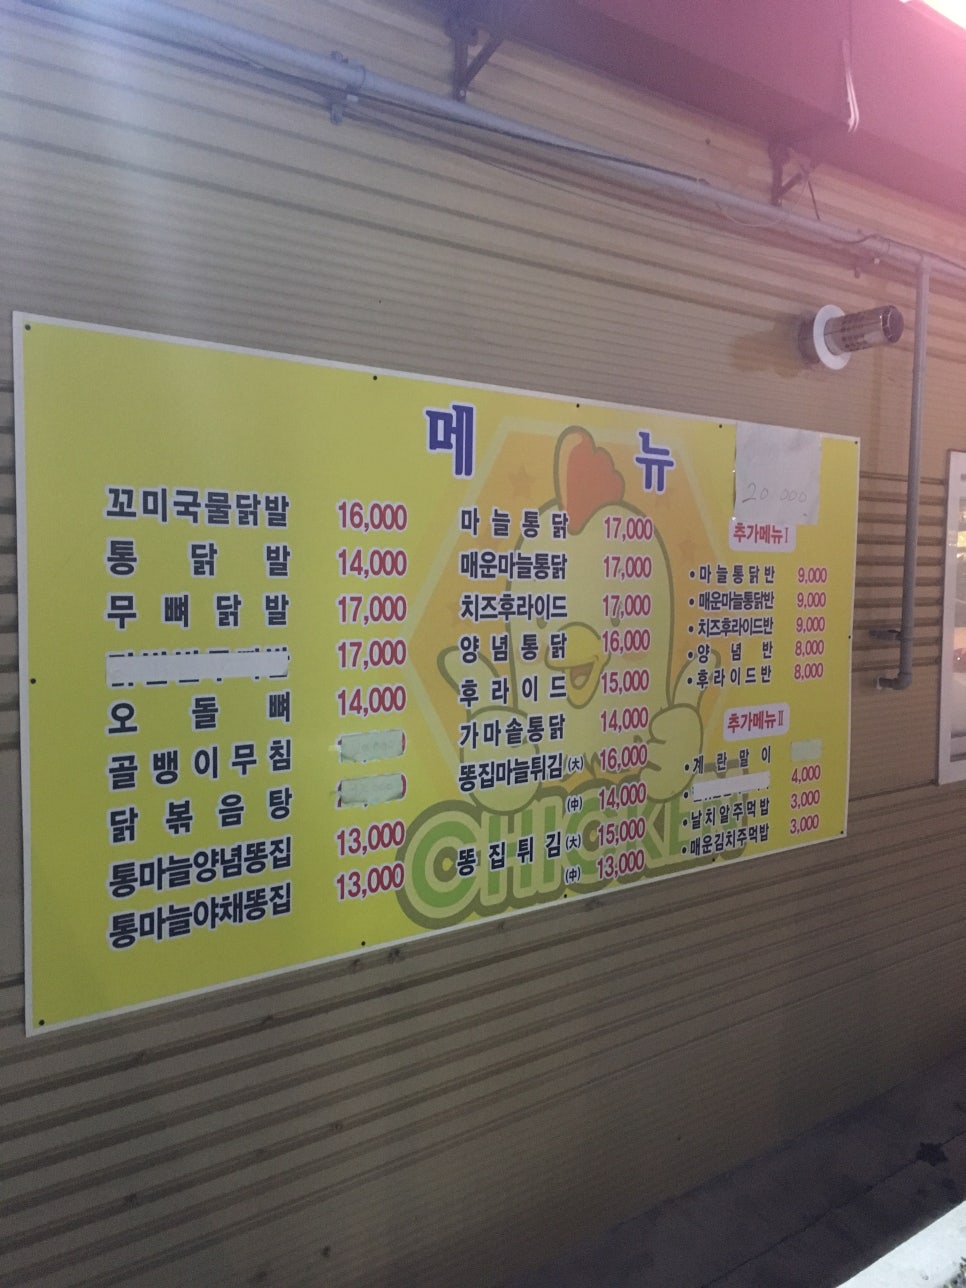 메뉴
꼬미국물닭발 16,000
통닭발 14,000
무뼈닭발 17,000
17,000
오돌뼈 14,000
골뱅이무침
닭볶음탕
통마늘양념똥집 13,000
통마늘야채똥집 13,000
마늘통닭 17,000
매운마늘통닭 17,000
치즈후라이드 17,000
양념통닭 16,000
후라이드 15,000
가마솥통닭 14,000
똥집마늘튀김(大) 16,000
(中) 14,000
똥집튀김(大) 15,000
(中) 13,000
CHICKEN
20,000
추가메뉴Ⅰ
•마늘통닭반 9,000
•매운마늘통닭반 9,000
•치즈후라이드반 9,000
•양념반 8,000
•후라이드반 8,000
추가메뉴Ⅱ
•계란말이
4,000
•날치알주먹밥 3,000
•매운김치주먹밥 3,000